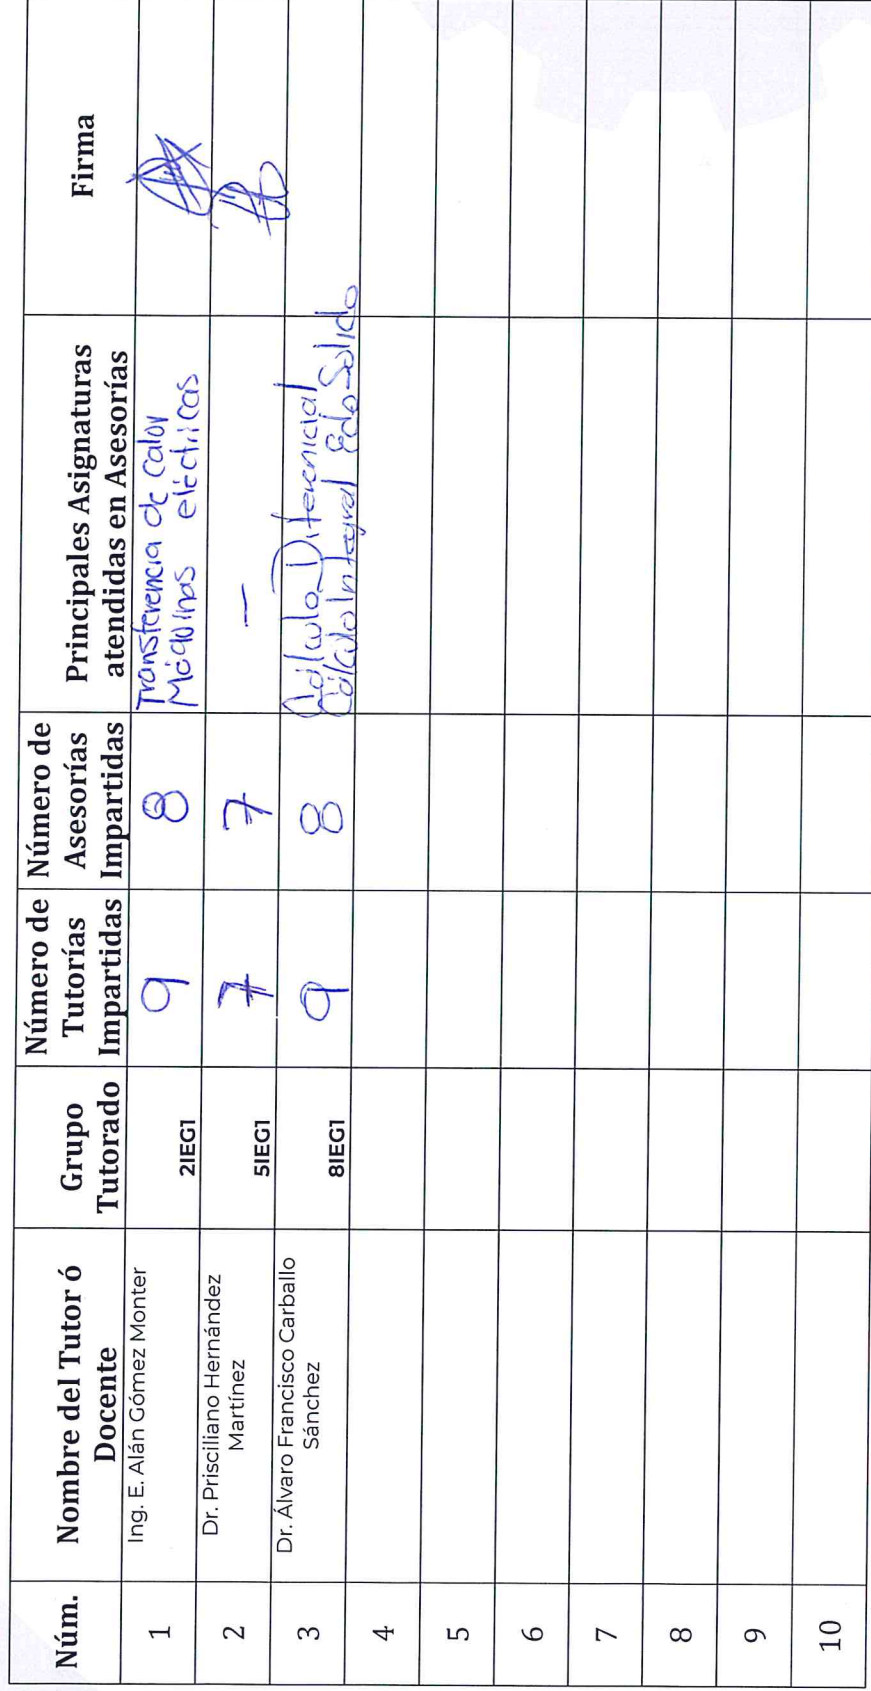 Núm.
Nombre del Tutor ó
Docente
Grupo
Tutorado
Número de
Tutorías
Impartidas
Número de
Asesorías
Impartidas
Principales Asignaturas
atendidas en Asesorías
Firma
1
Ing. E. Alán Gómez Monter
2IEG1
9
8
Transferencia de calor
Máquinas eléctricas
2
Dr. Prisciliano Hernández
Martínez
5IEG1
7
7
—
3
Dr. Álvaro Francisco Carballo
Sánchez
8IEG1
9
8
Cálculo Diferencial
Cálculo Integral Edo Solido
4
5
6
7
8
9
10